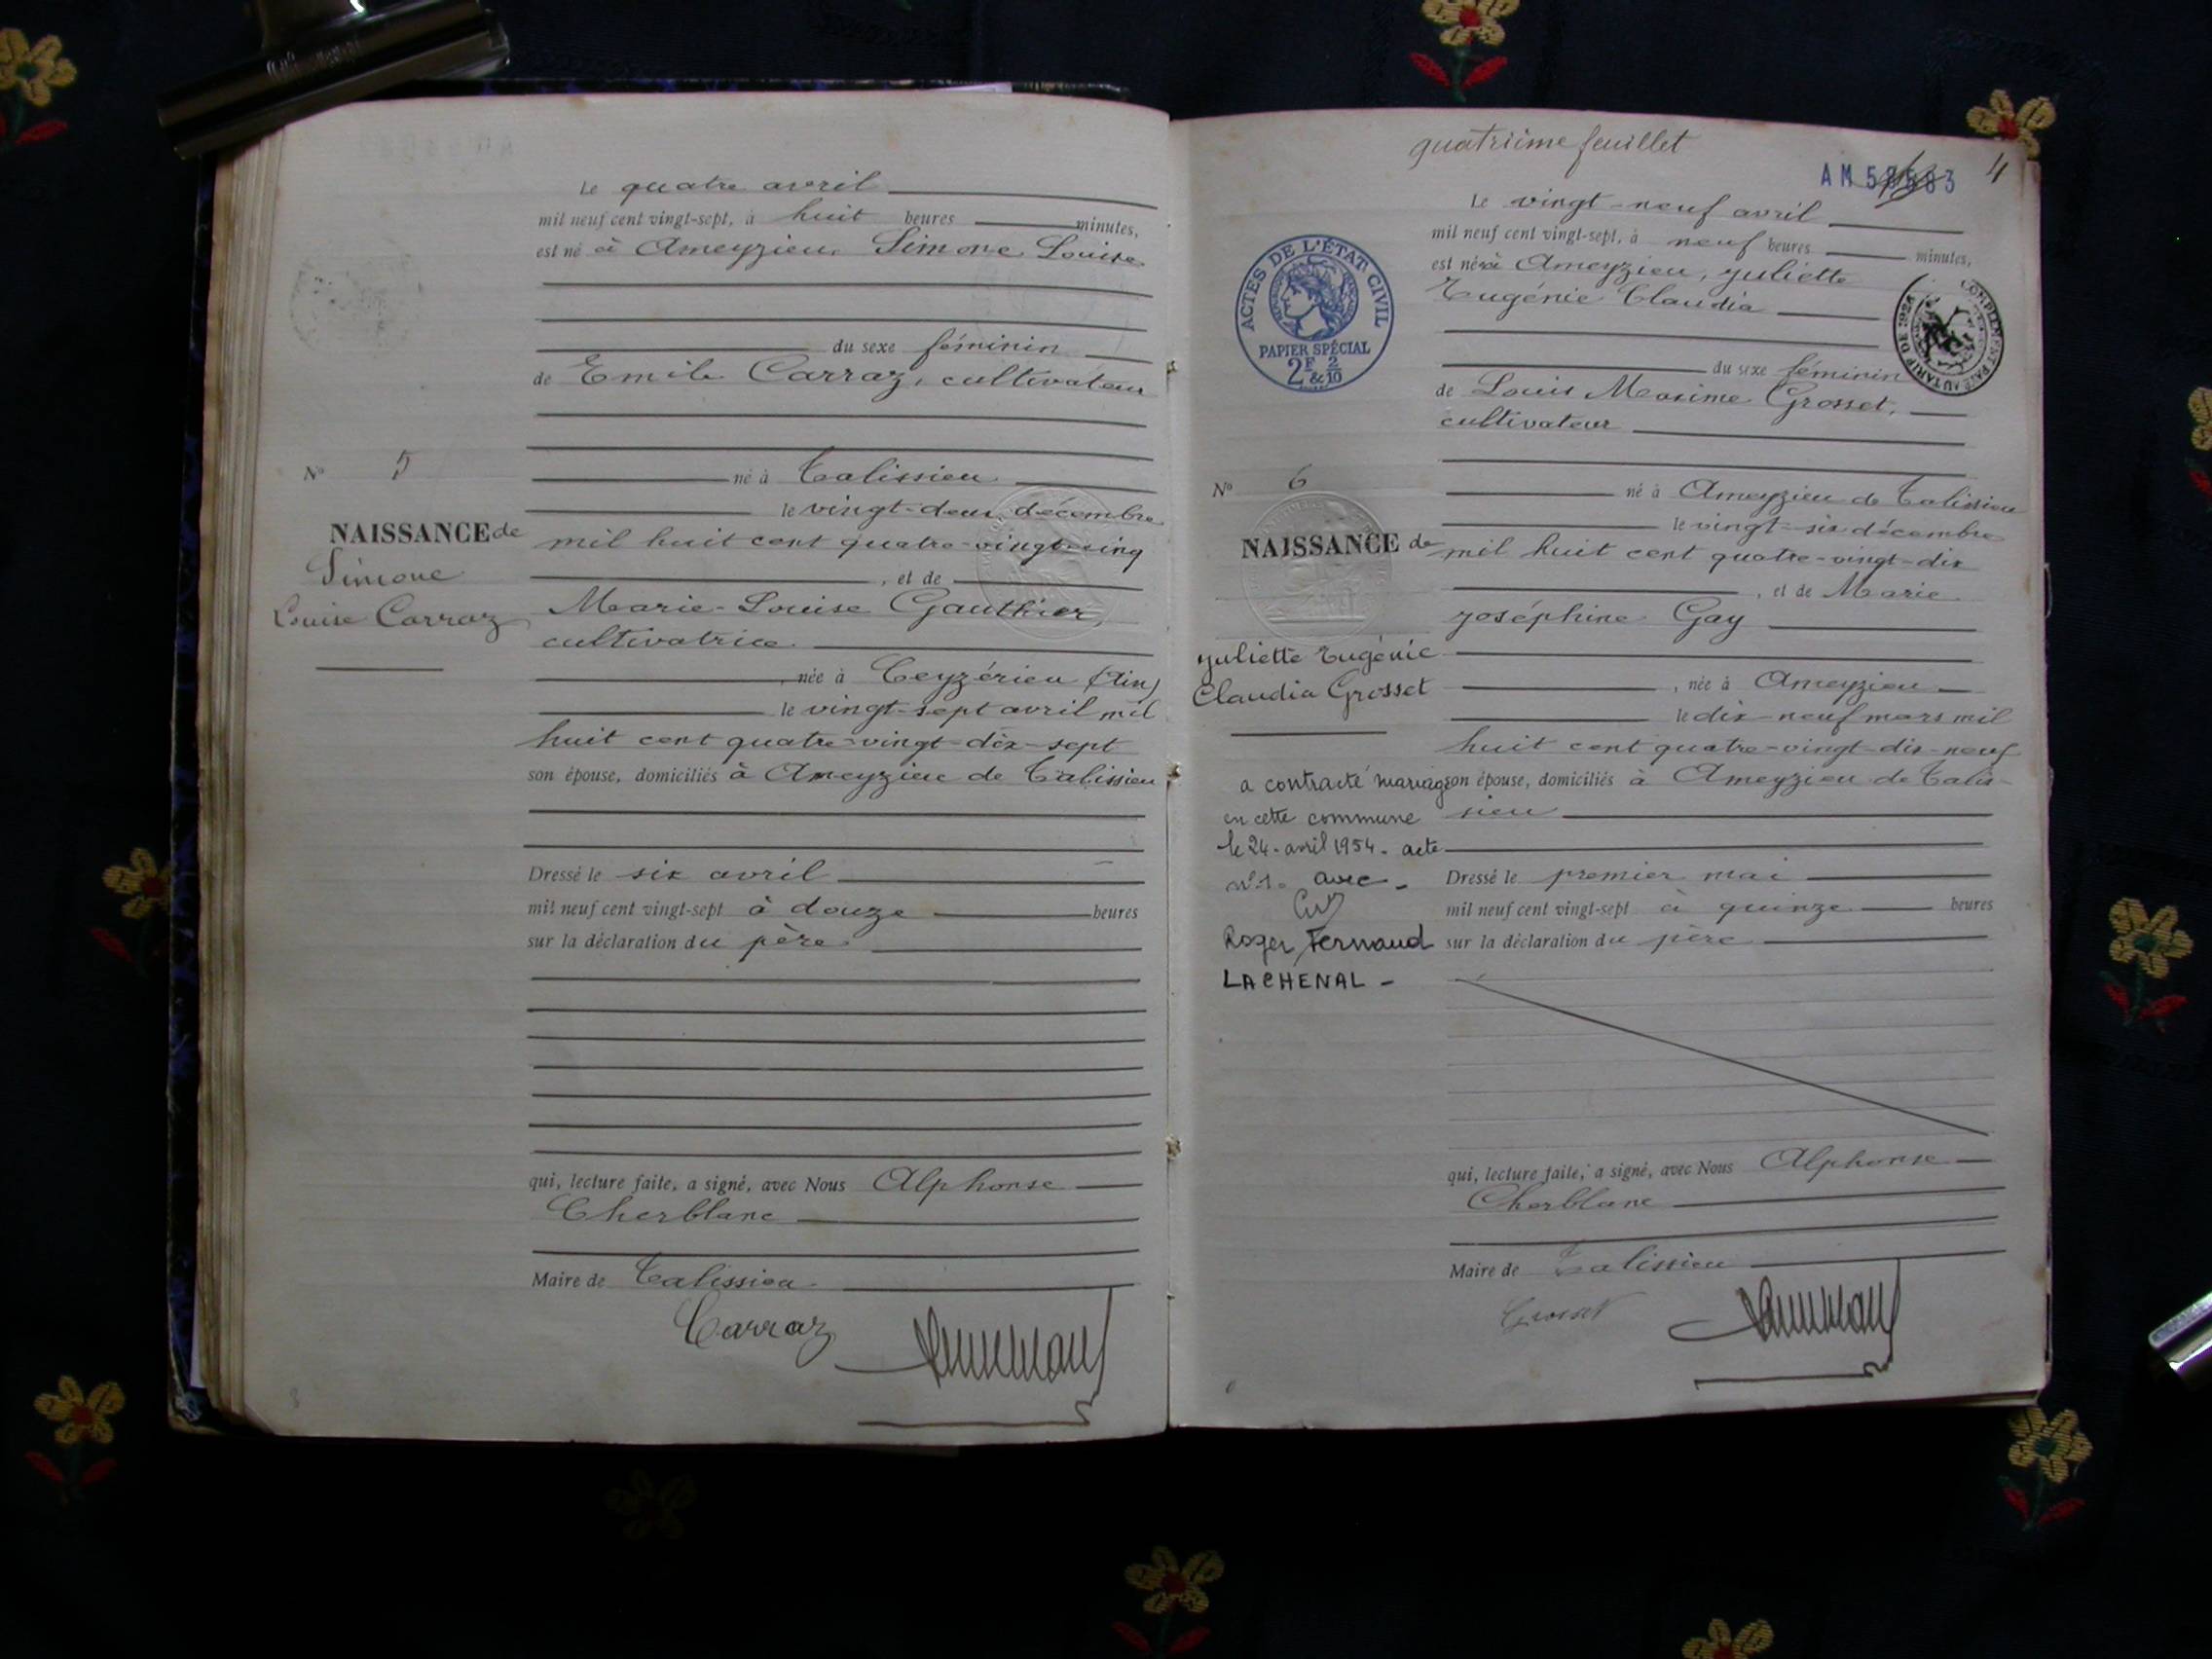 Le quatre avril
mil neuf cent vingt-sept, à huit heures minutes,
est né à Ameyzieu Simone Louise
du sexe féminin
de Emile Carraz, cultivateur
né à Talissieu
le vingt-deux décembre
mil huit cent quatre-vingt-cinq
, et de
Marie-Louise Gauthier,
cultivatrice
, née à Ceyzérieu (Ain)
le vingt-sept avril mil
huit cent quatre-vingt-dix-sept
son épouse, domiciliés à Ameyzieu de Talissieu
Dressé le six avril
mil neuf cent vingt-sept à douze heures
sur la déclaration du père
qui, lecture faite, a signé, avec Nous Alphonse
Cherblanc
Maire de Talissieu
Carraz
N° 5
NAISSANCE de
Simone
Louise Carraz
quatrième feuillet
4
AM 58583
Le vingt-neuf avril
mil neuf cent vingt-sept, à neuf heures minutes,
est née à Ameyzieu, Juliette
Eugénie Claudia
du sexe féminin
de Louis Maxime Grosset,
cultivateur
né à Ameyzieu de Talissieu
le vingt-six décembre
mil huit cent quatre-vingt-dix
, et de Marie
Joséphine Gay
, née à Ameyzieu
le dix-neuf mars mil
huit cent quatre-vingt-dix-neuf
son épouse, domiciliés à Ameyzieu de Talis-
sieu
Dressé le premier mai
mil neuf cent vingt-sept à quinze heures
sur la déclaration du père
qui, lecture faite, a signé, avec Nous Alphonse
Cherblanc
Maire de Talissieu
Grosset
ACTES DE L'ÉTAT CIVIL
PAPIER SPÉCIAL
2F & 2/10
COMPLÉMENT PAYÉ AU TARIF DE 1924
N° 6
NAISSANCE de
Juliette Eugénie
Claudia Grosset
a contracté mariage
en cette commune
le 24 avril 1954 - acte
n° 1. avec -
Guy
Roger, Fernand
LACHENAL -